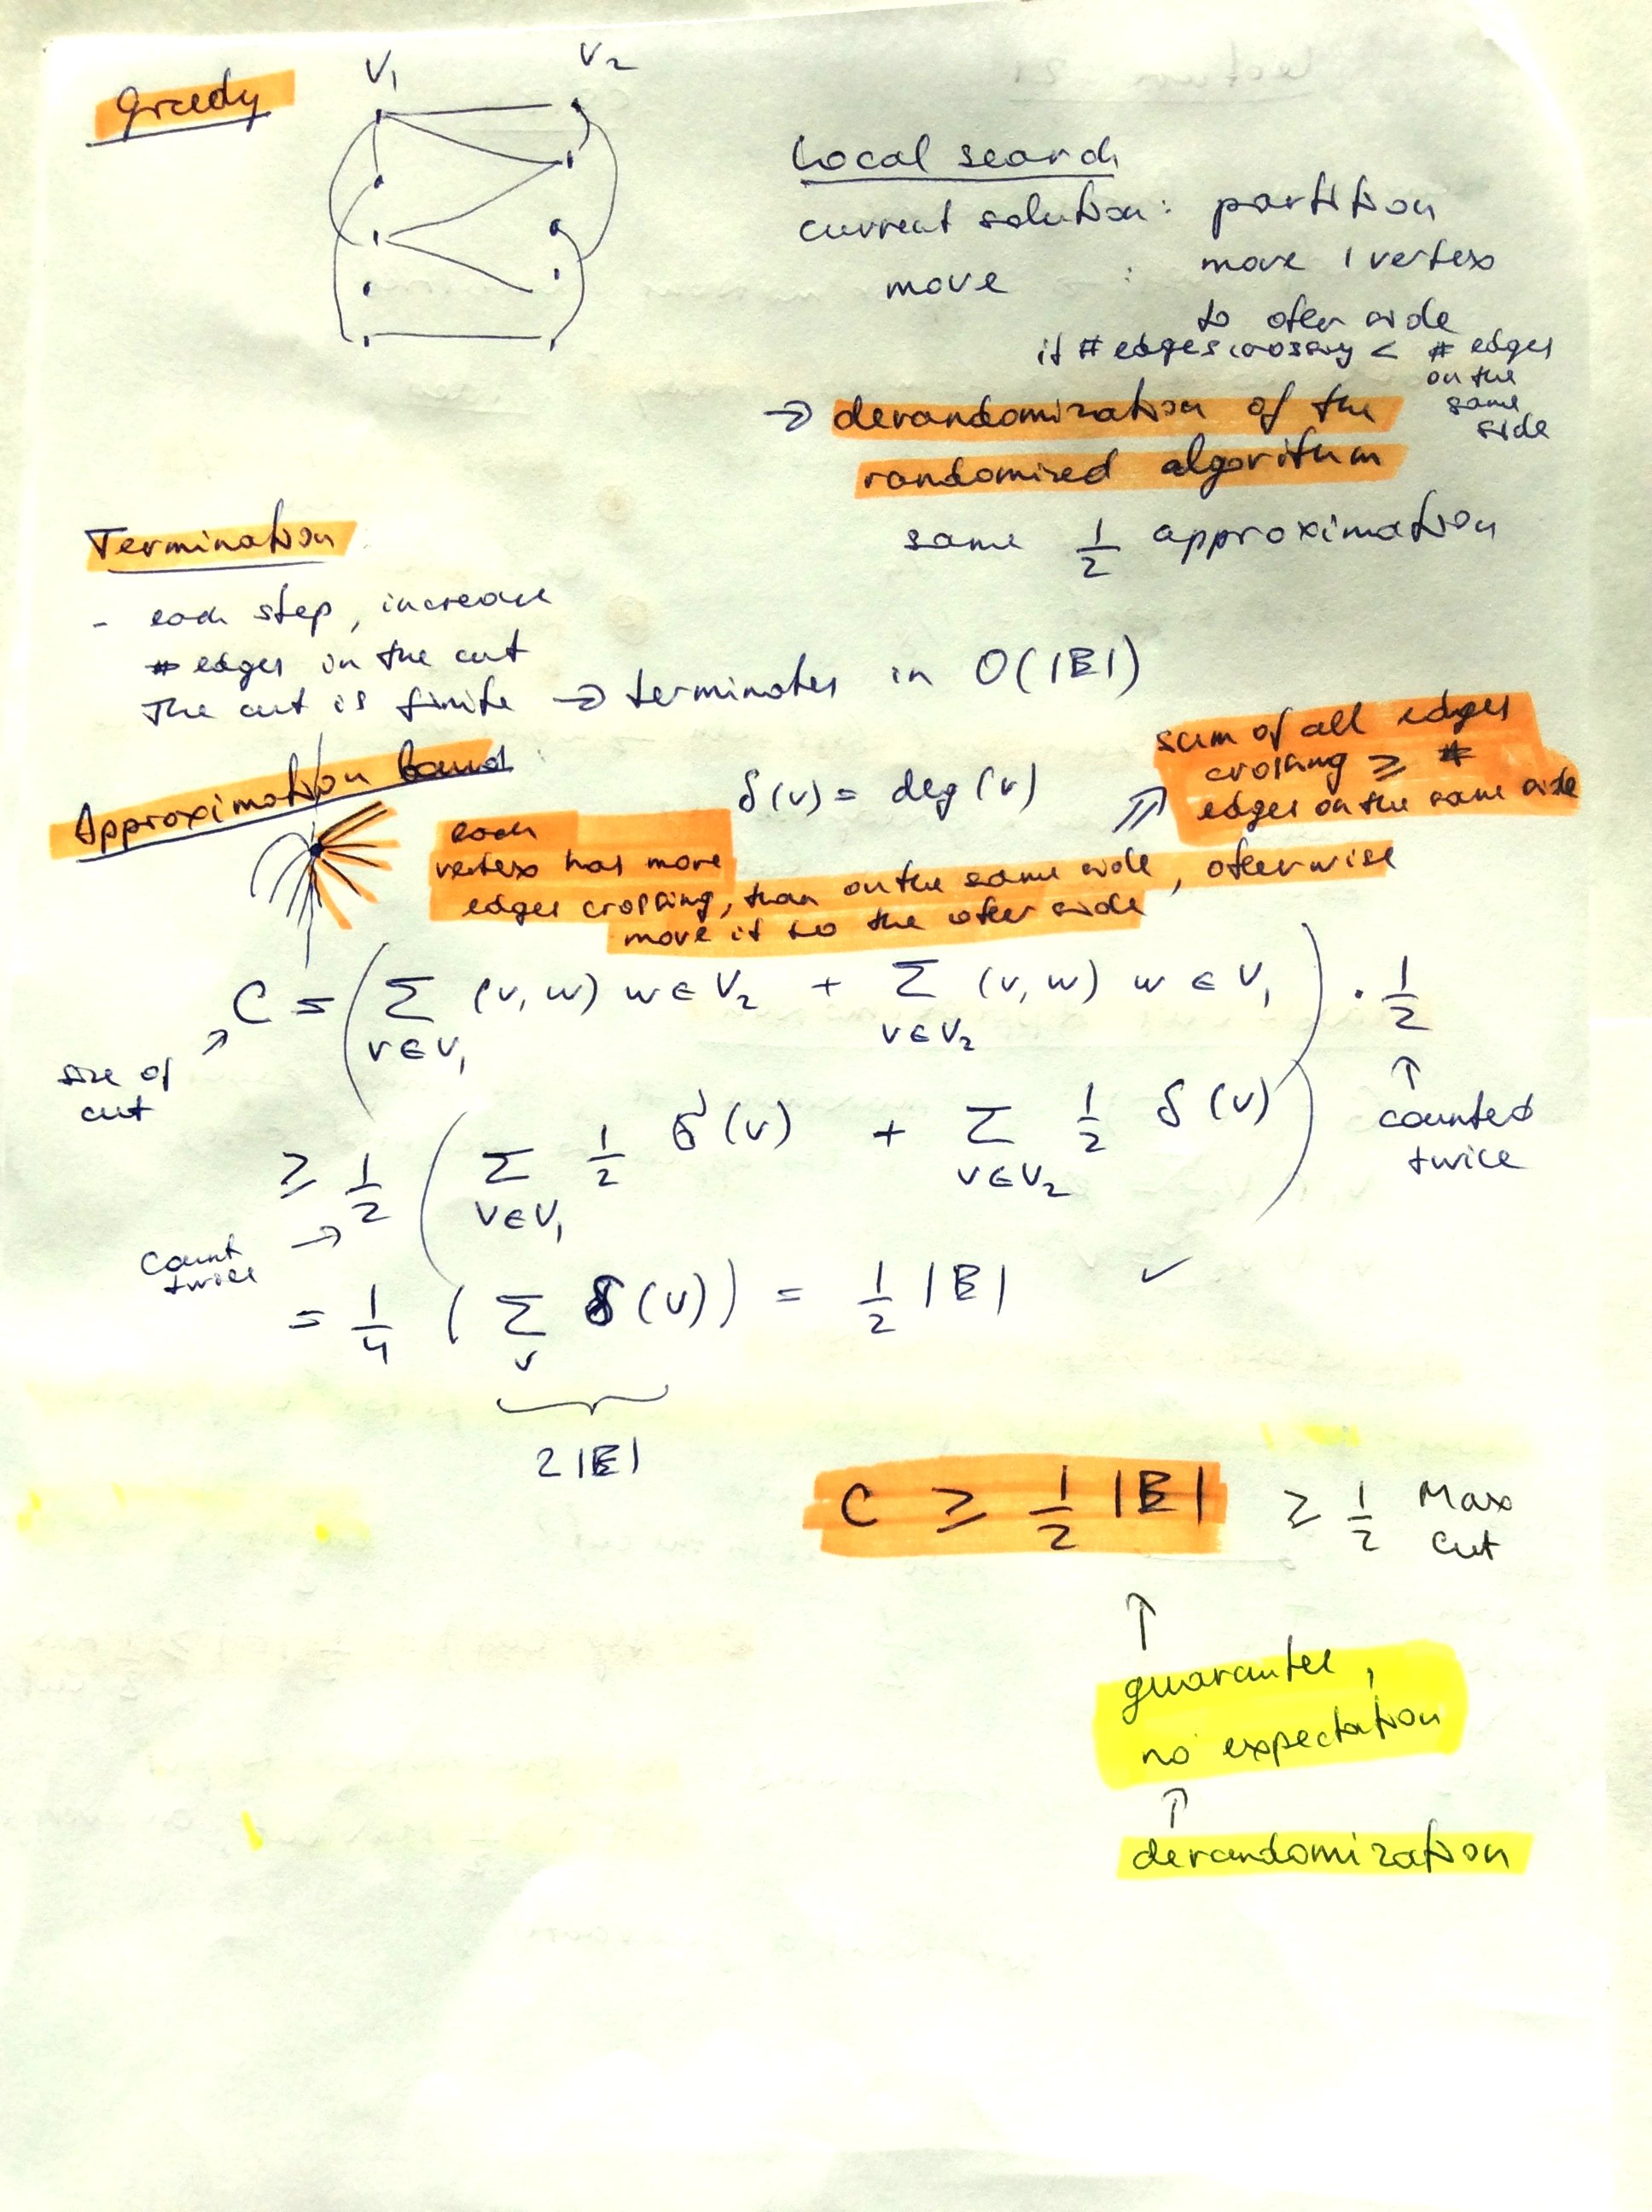 Greedy
V₁ V₂
Local search
current solution: partition
move : move 1 vertex
to other side
if # edges crossing < # edges
on the
same
side
→ derandomization of the
randomized algorithm
same 1/2 approximation
Termination
- each step, increase
# edges in the cut
The cut is finite → terminates in O(|E|)
Approximation bound:
δ(v) = deg(v)
sum of all edges
crossing ≥ #
edges on the same side
each
vertex has more
edges crossing, than on the same side, otherwise
move it to the other side
C = ( Σ (v, w) w ∈ V₂ + Σ (v, w) w ∈ V₁ ) · 1/2
v ∈ V₁ v ∈ V₂
size of
cut
↑
counted
twice
≥ 1/2 ( Σ 1/2 δ(v) + Σ 1/2 δ(v) )
v ∈ V₁ v ∈ V₂
count →
twice
= 1/4 ( Σ δ(v) ) = 1/2 |E| ✓
v
2|E|
C ≥ 1/2 |E| ≥ 1/2 Max
Cut
↑
guarantee,
no expectation
↑
derandomization